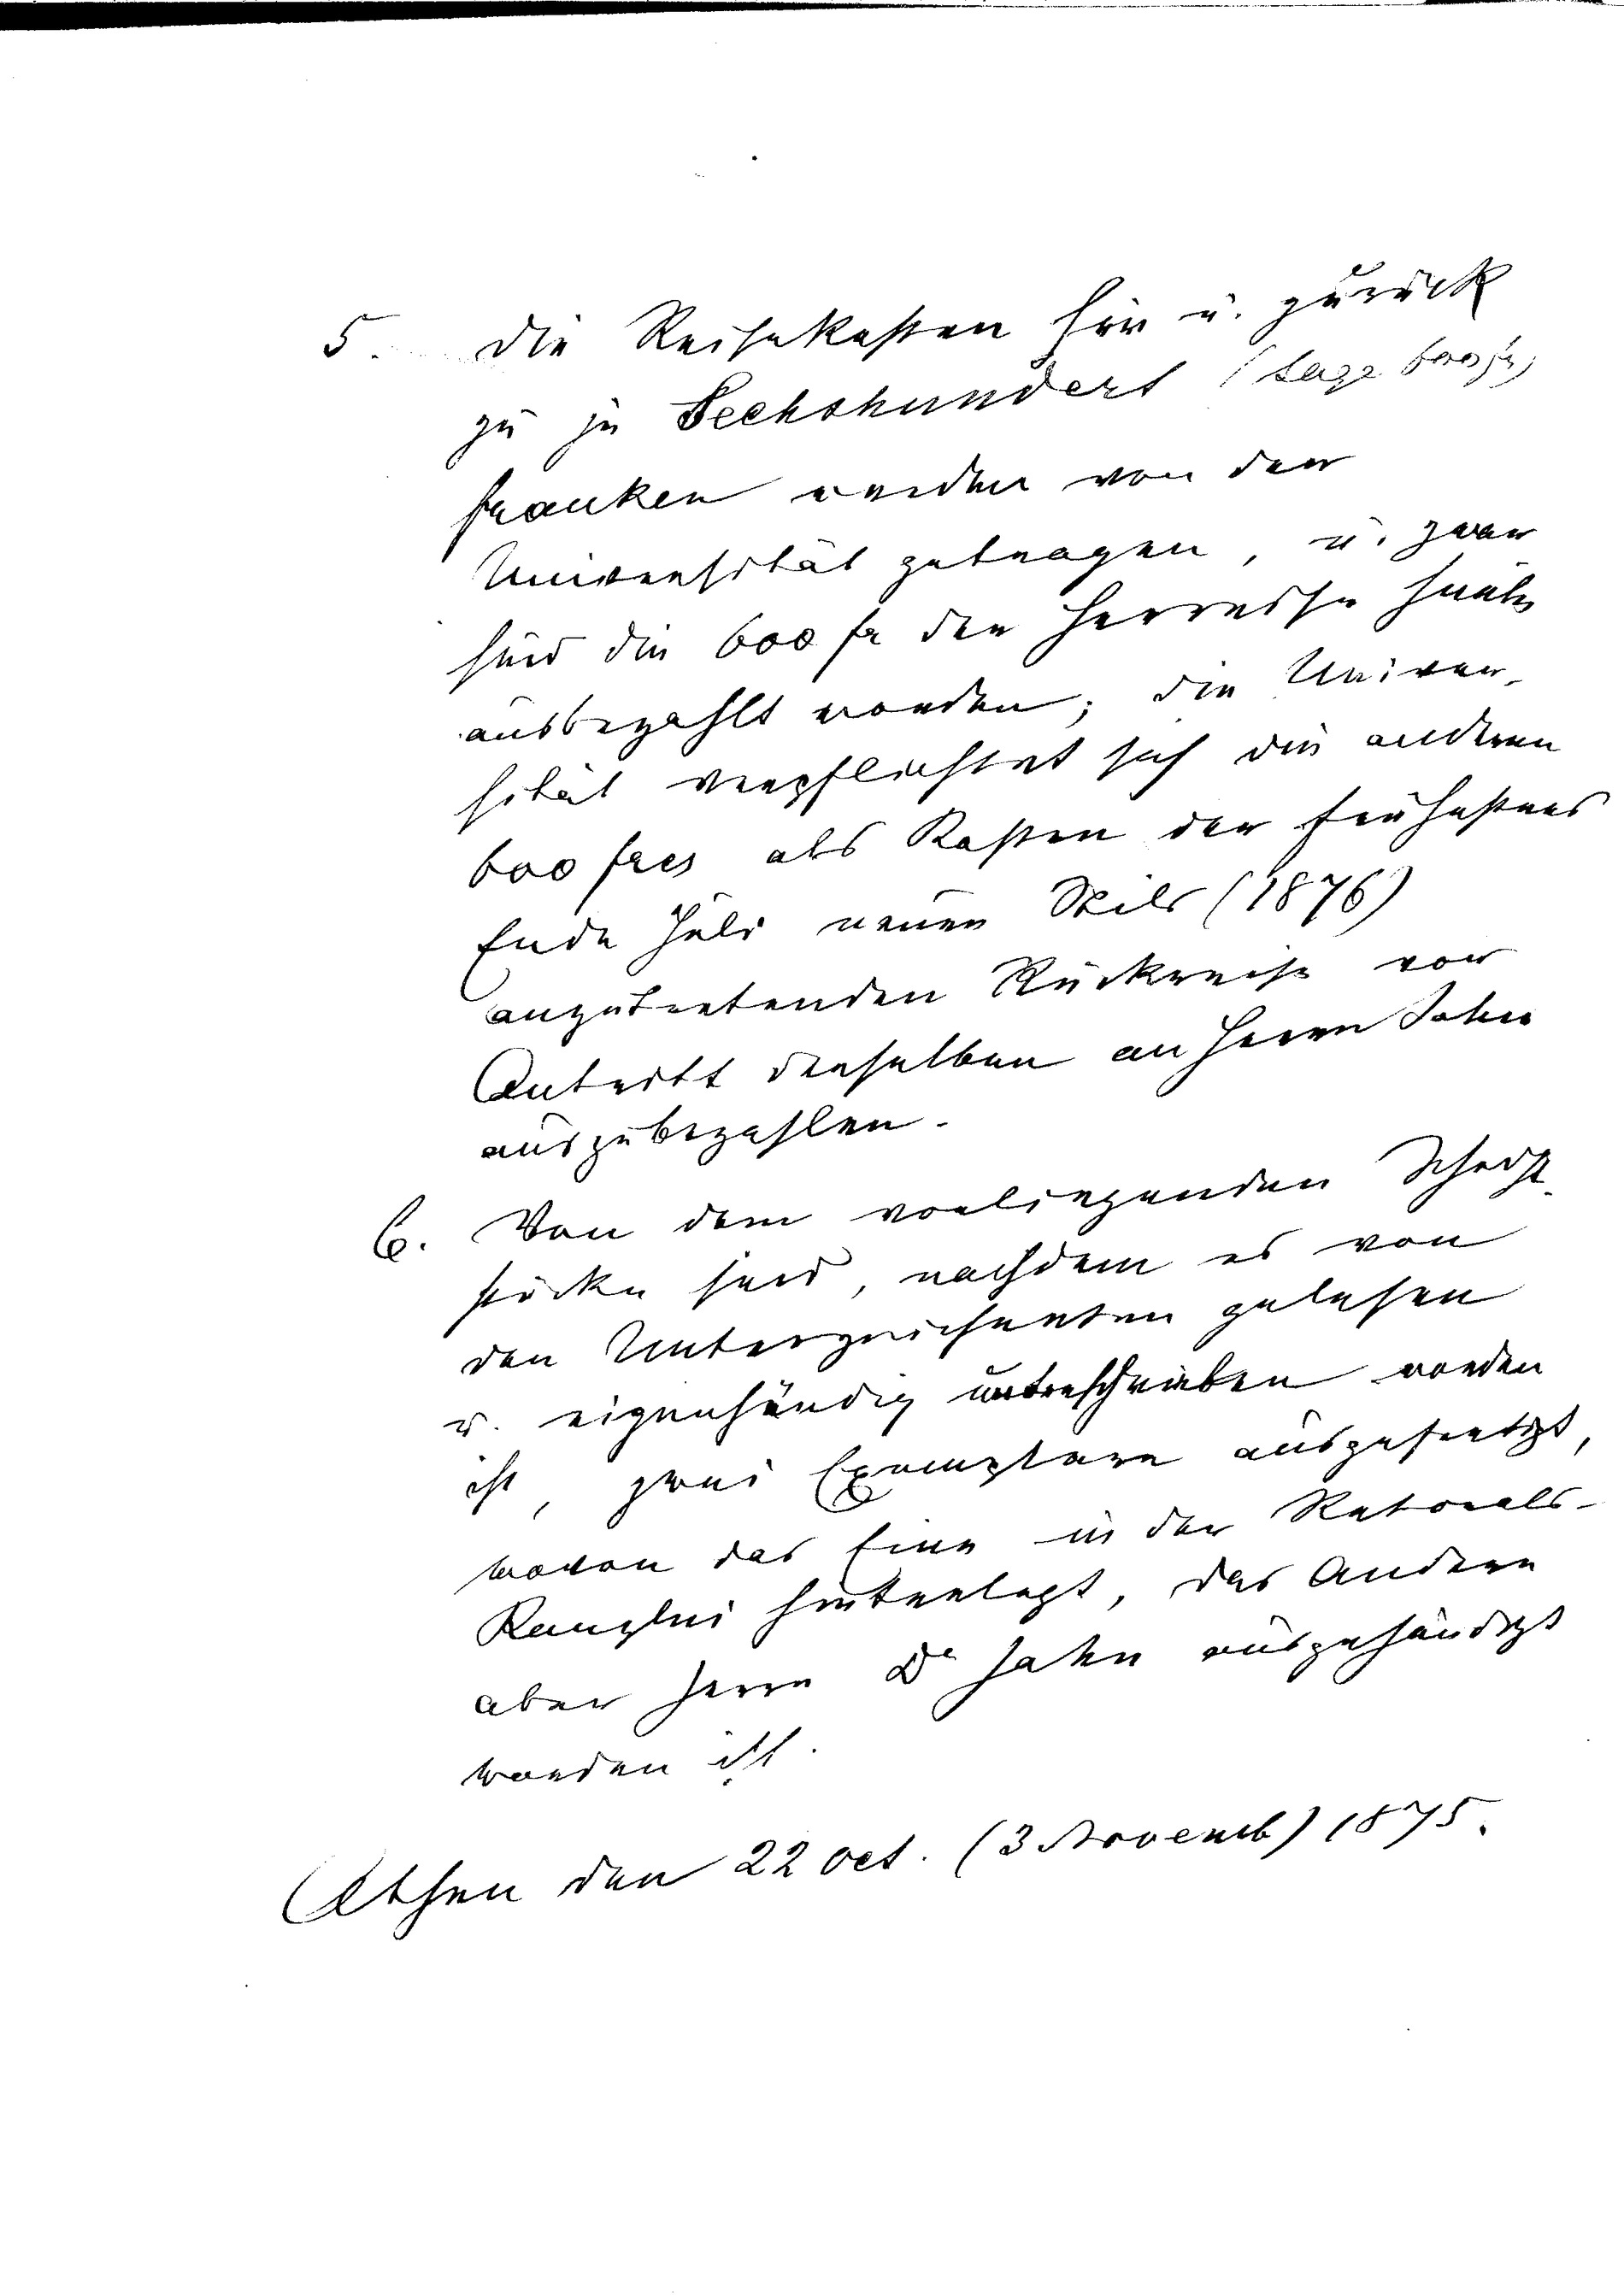 5. Die Reisekosten hin u. zurück
zu je Sechshundert (sage 600 fr)
Franken werden von der
Universität getragen, u. zwar
sind die 600 fr der Herreise
ausbezahlt worden; die Univer-
sität verpflichtet sich die anderen
600 frcs als Kosten der frühestens
Ende Juli neuen Stils (1876)
anzutretenden Rückreise vor
Antritt derselben an Herrn Jahn
auszubezahlen.
6. Von dem vorliegenden Schrift-
stücke sind, nachdem es von
den Unterzeichneten gelesen
u. eigenhändig unterschrieben worden
ist, zwei Exemplare ausgefertigt,
wovon das Eine in der Retorals-
Kanzlei hinterlegt, das Andere
aber Herrn Dr Jahn ausgehändigt
worden ist.
Athen den 22 Oct. (3 Novemb) 1875.